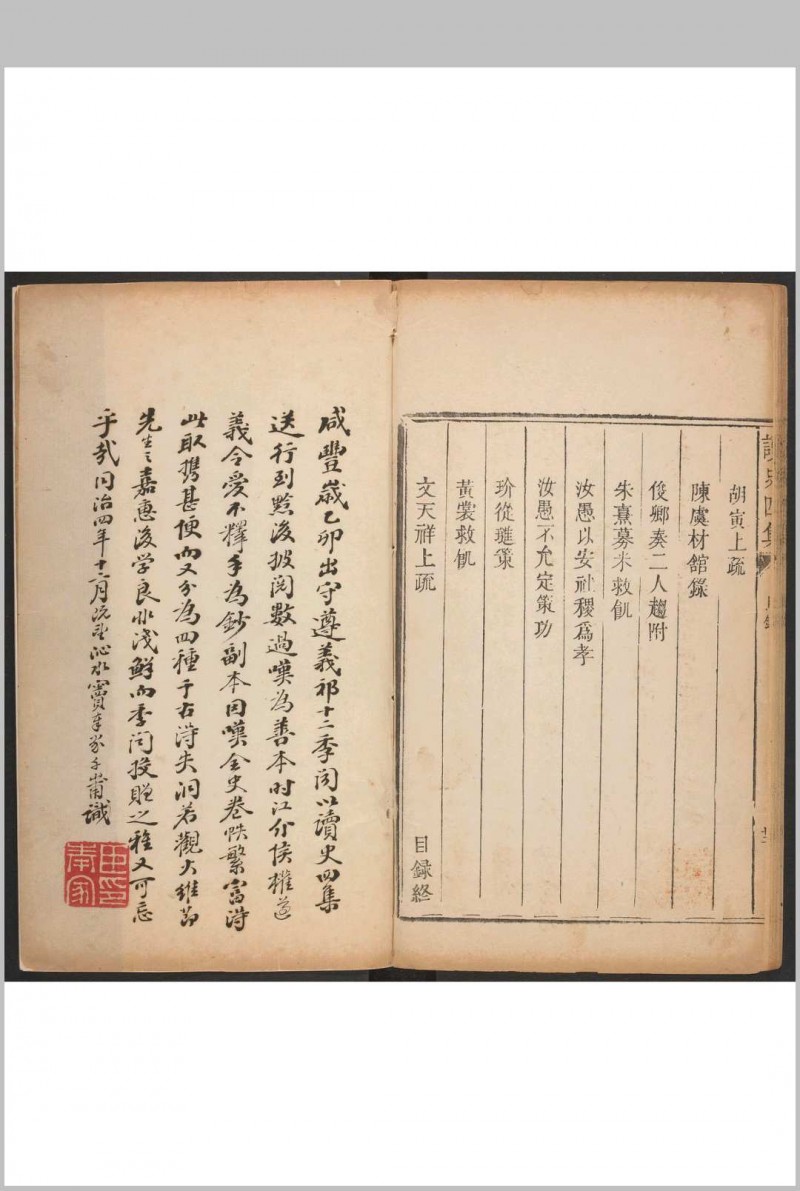 讀史四集 目錄
胡寅上疏
陳虞材館錄
俊卿奏二人趨附
朱熹募米救飢
汝愚以安社稷爲孝
汝愚不允定策功
玠從璡策
黃裳救飢
文天祥上疏
目録終
咸豐歲乙卯出守遵義祁十二季閎以讀史四集
送行到黔後披閱數過嘆為善本时江介侯權遵
義令愛不釋手為鈔副本因嘆全史卷帙繁富得
此取携甚便而又分為四種于古得失洞若觀火維節
先生之嘉惠後学良非淺鮮而季閎投贈之雅又可忘
乎哉同治四年十二月既望沁水竇奉家千莆識